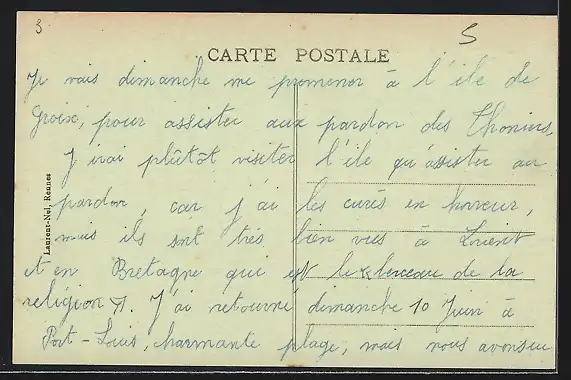 3
5
CARTE POSTALE
Je vais dimanche me promener à l'île de
Groix, pour assister aux pardon des Thoniers,
J'irai plûtôt visiter l'île qu'assister au
pardon, car j'ai les curés en horreur,
mais ils sont très bien vus à Lorient
et en Bretagne qui est le berceau de la
religion. J'ai retourné dimanche 10 Juin à
Port-Louis, charmante plage, mais nous avons eu
Laurent-Nel, Rennes